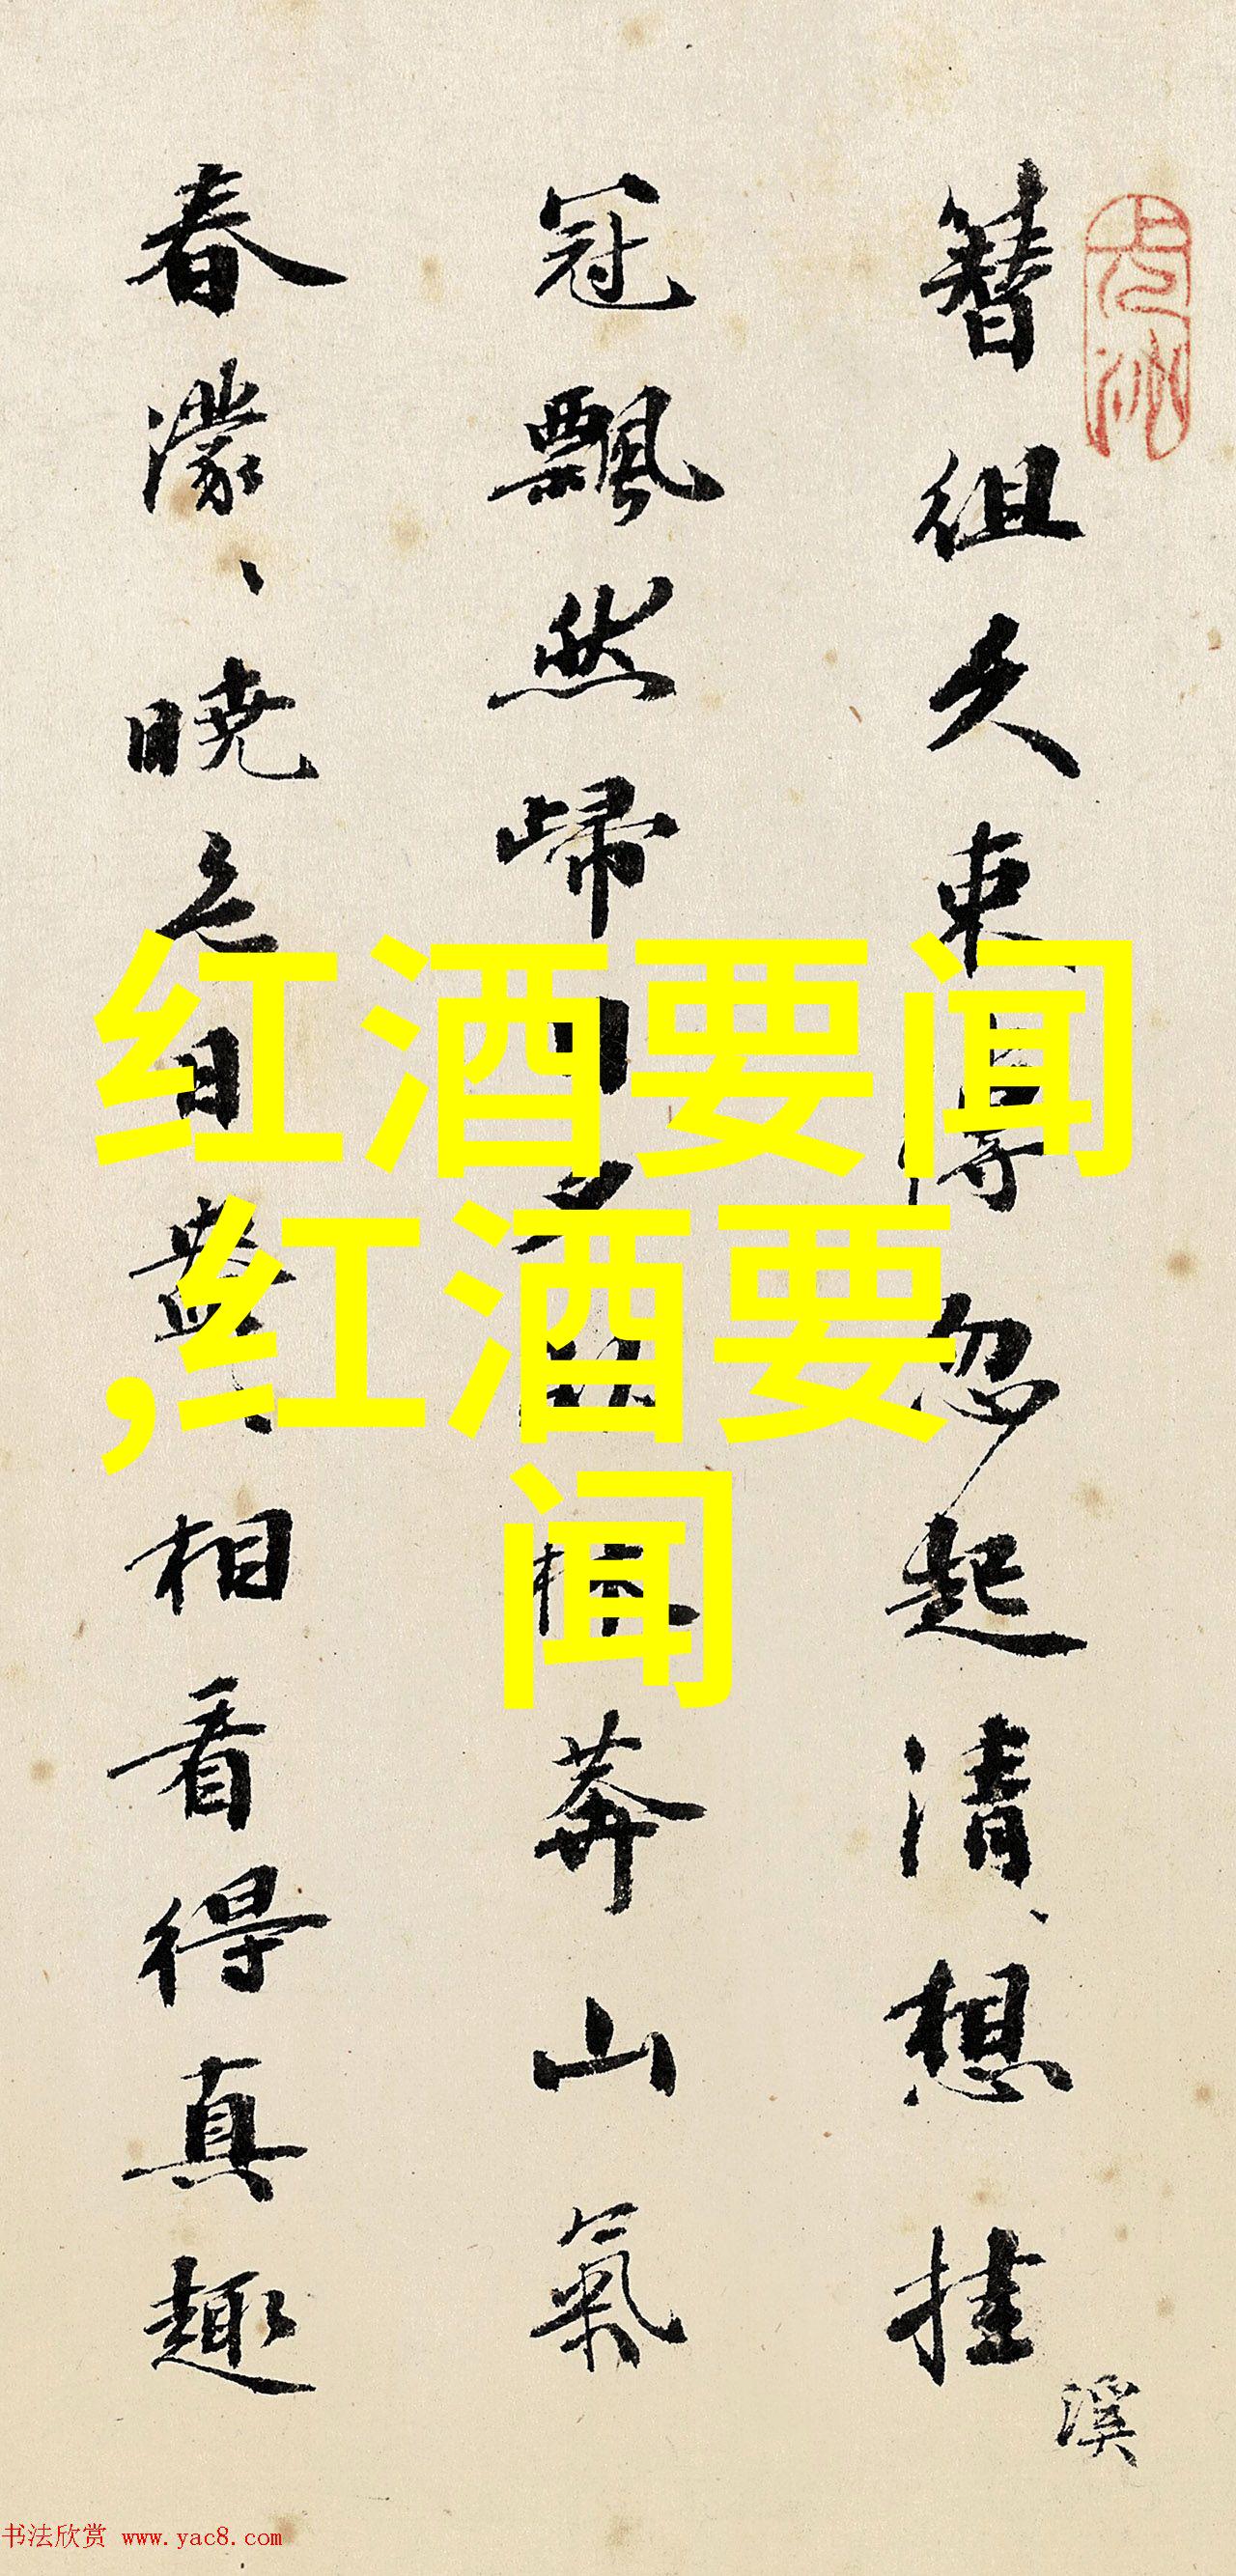 簪组久束缚忽起清想挂
冠飘然归
莽山氣
春濛、晓色
相看得真趣
溪
红酒要闻
,红酒要
闻
书法欣赏 www.yac8.com